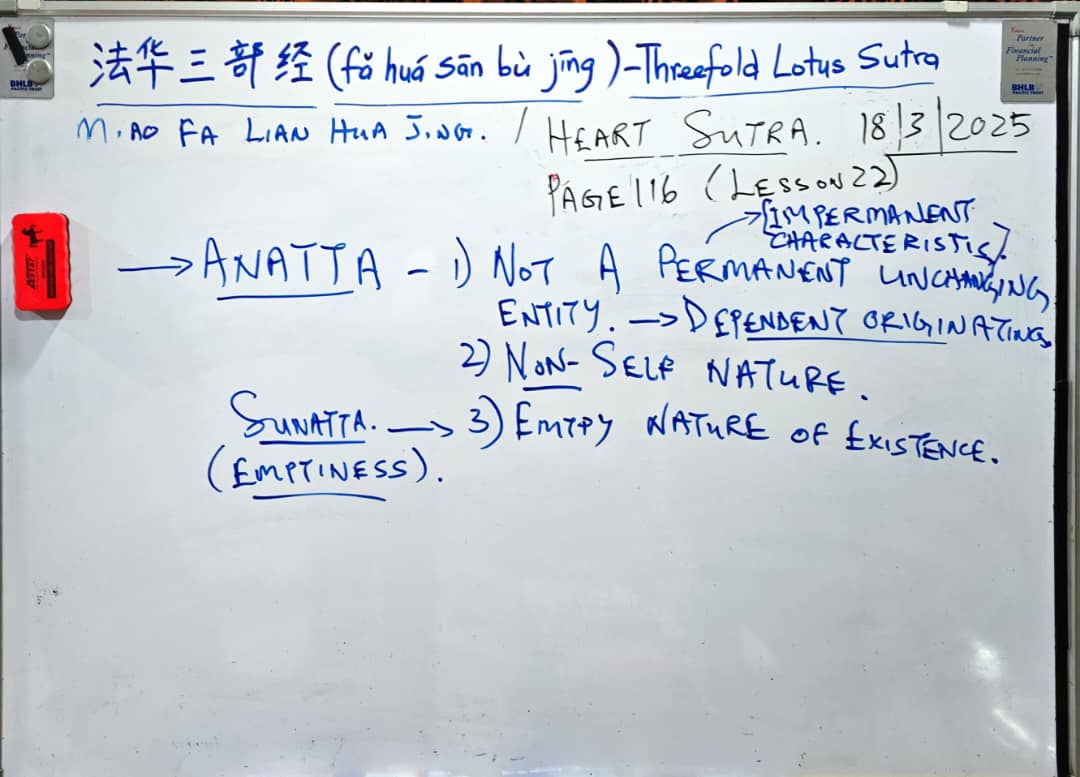 法华三部经 (fǎ huá sān bù jīng) - Threefold Lotus Sutra
MIAO FA LIAN HUA JING. / HEART SUTRA. 18/3/2025
PAGE 116 (LESSON 22)
→ [IMPERMANENT
CHARACTERISTIS].
→ ANATTA - 1) NOT A PERMANENT UNCHANGING
ENTITY. → DEPENDENT ORIGINATING
2) NON-SELF NATURE.
SUNATTA. → 3) EMTPY NATURE OF EXISTENCE.
(EMPTINESS).
Partner
Financial
Planning
BHLB
BHLB